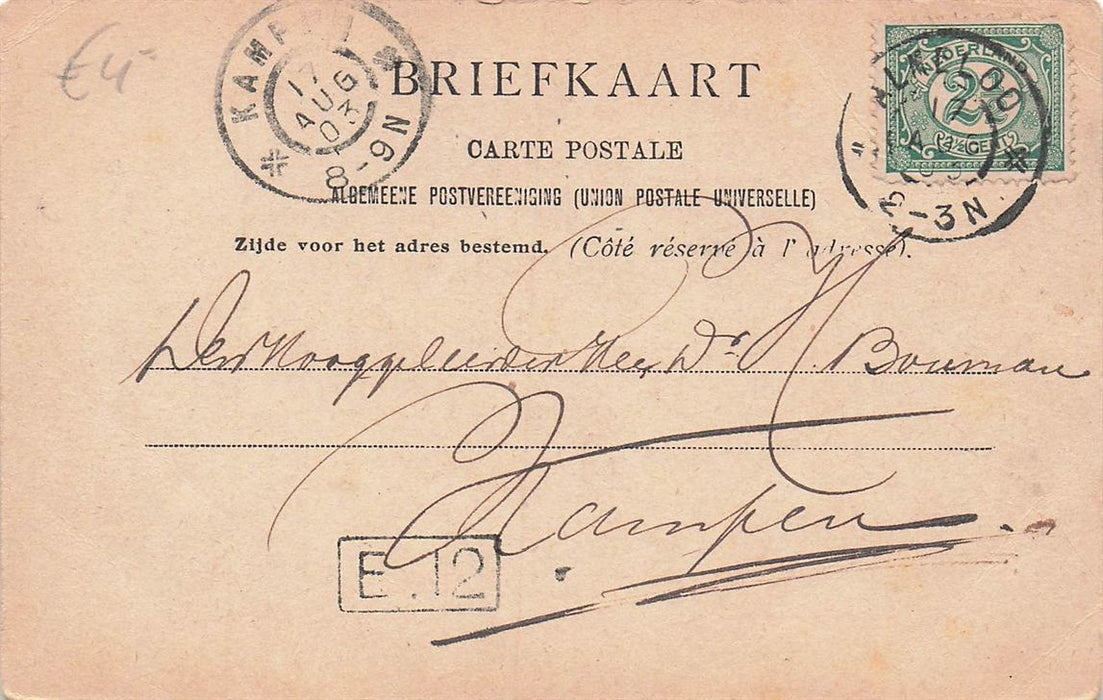 €4-
KAMPEN
17
AUG
03
8-9N
NEDERLAND
2½
2½ CENT
LOO
-3N
BRIEFKAART
CARTE POSTALE
ALGEMEENE POSTVEREENIGING (UNION POSTALE UNIVERSELLE)
Zijde voor het adres bestemd. (Côté réservé à l'adresse).
Den Dr H Bouman
Kampen
E.12